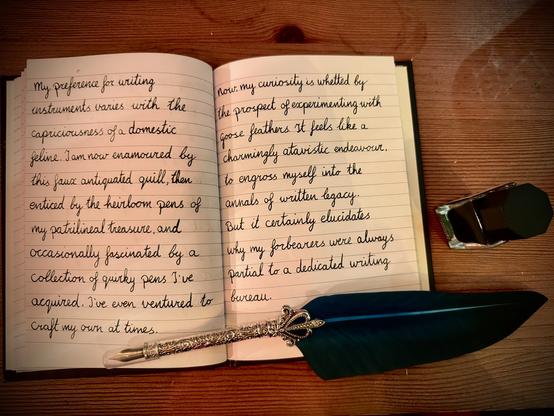 My preference for writing
instruments varies with the
capriciousness of a domestic
feline. I am now enamoured by
this faux antiquated quill, then
enticed by the heirloom pens of
my patrilineal treasure, and
occasionally fascinated by a
collection of quirky pens I've
acquired. I've even ventured to
craft my own at times.
Now, my curiosity is whetted by
the prospect of experimenting with
goose feathers. It feels like a
charmingly atavistic endeavour,
to engross myself into the
annals of written legacy.
But it certainly elucidates
why my forbearers were always
partial to a dedicated writing
bureau.